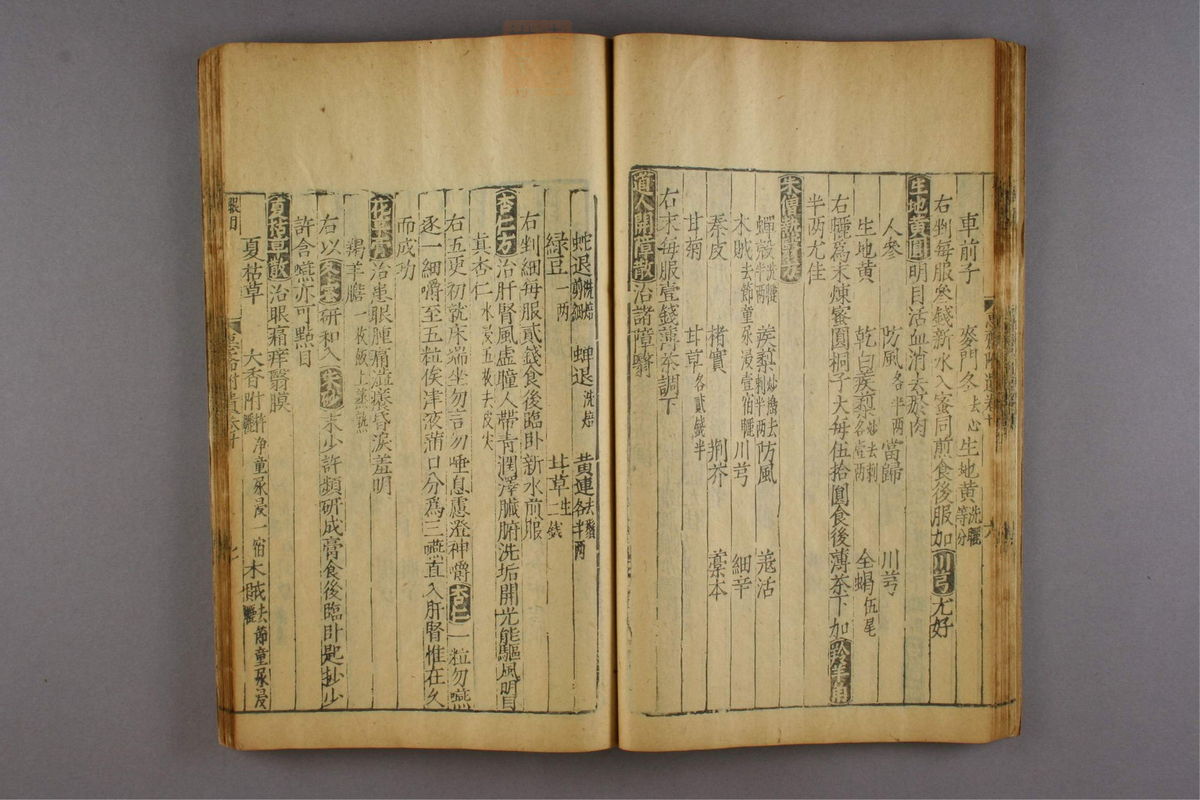 車前子 麥門冬去心 生地黃洗曬等分
右剉每服叁錢新水入蜜同煎食後服加川芎尤好
生地黃圓明目活血消去瘀肉
人參 防風各半兩 當歸 川芎
生地黃 乾白蒺藜炒去刺各壹兩 全蝎伍尾
右曬爲末煉蜜圓桐子大每伍拾圓食後薄茶下加羚羊角
半兩尤佳
朱僧
蟬殼洗曬半兩 蒺藜炒搗去刺半兩 防風 羗活
木賊去節童尿浸壹宿曬 川芎 細辛
秦皮 楮實 荆芥 藁本
甘菊 甘草各貳錢半
右末每服壹錢薄茶調下
道人開障散治諸障翳
蛇退洗焙剪細 蟬退洗焙 黃連去鬚各半兩
綠豆一兩 甘草生二錢
右剉細每服貳錢食後臨卧新水煎服
杏仁方治肝腎風虚瞳人帶青潤澤臟腑洗垢開光能驅風明目
真杏仁水浸五枚去皮尖
右五更初就床端坐勿言勿唾息慮澄神嚼杏仁一粒勿嚥
逐一細嚼至五粒俟津液滿口分爲三嚥直入肝腎惟在久
而成功
花草膏治患眼腫痛澁癢昏淚羞明
羯羊膽一枚飯上蒸熟
右以研和入朱砂末少許頻研成膏食後臨卧匙抄少
許含嚥亦可點目
夏枯草散治眼痛痒翳膜
夏枯草 大香附杵净童尿浸一宿曬 木賊去節童尿浸
眼目